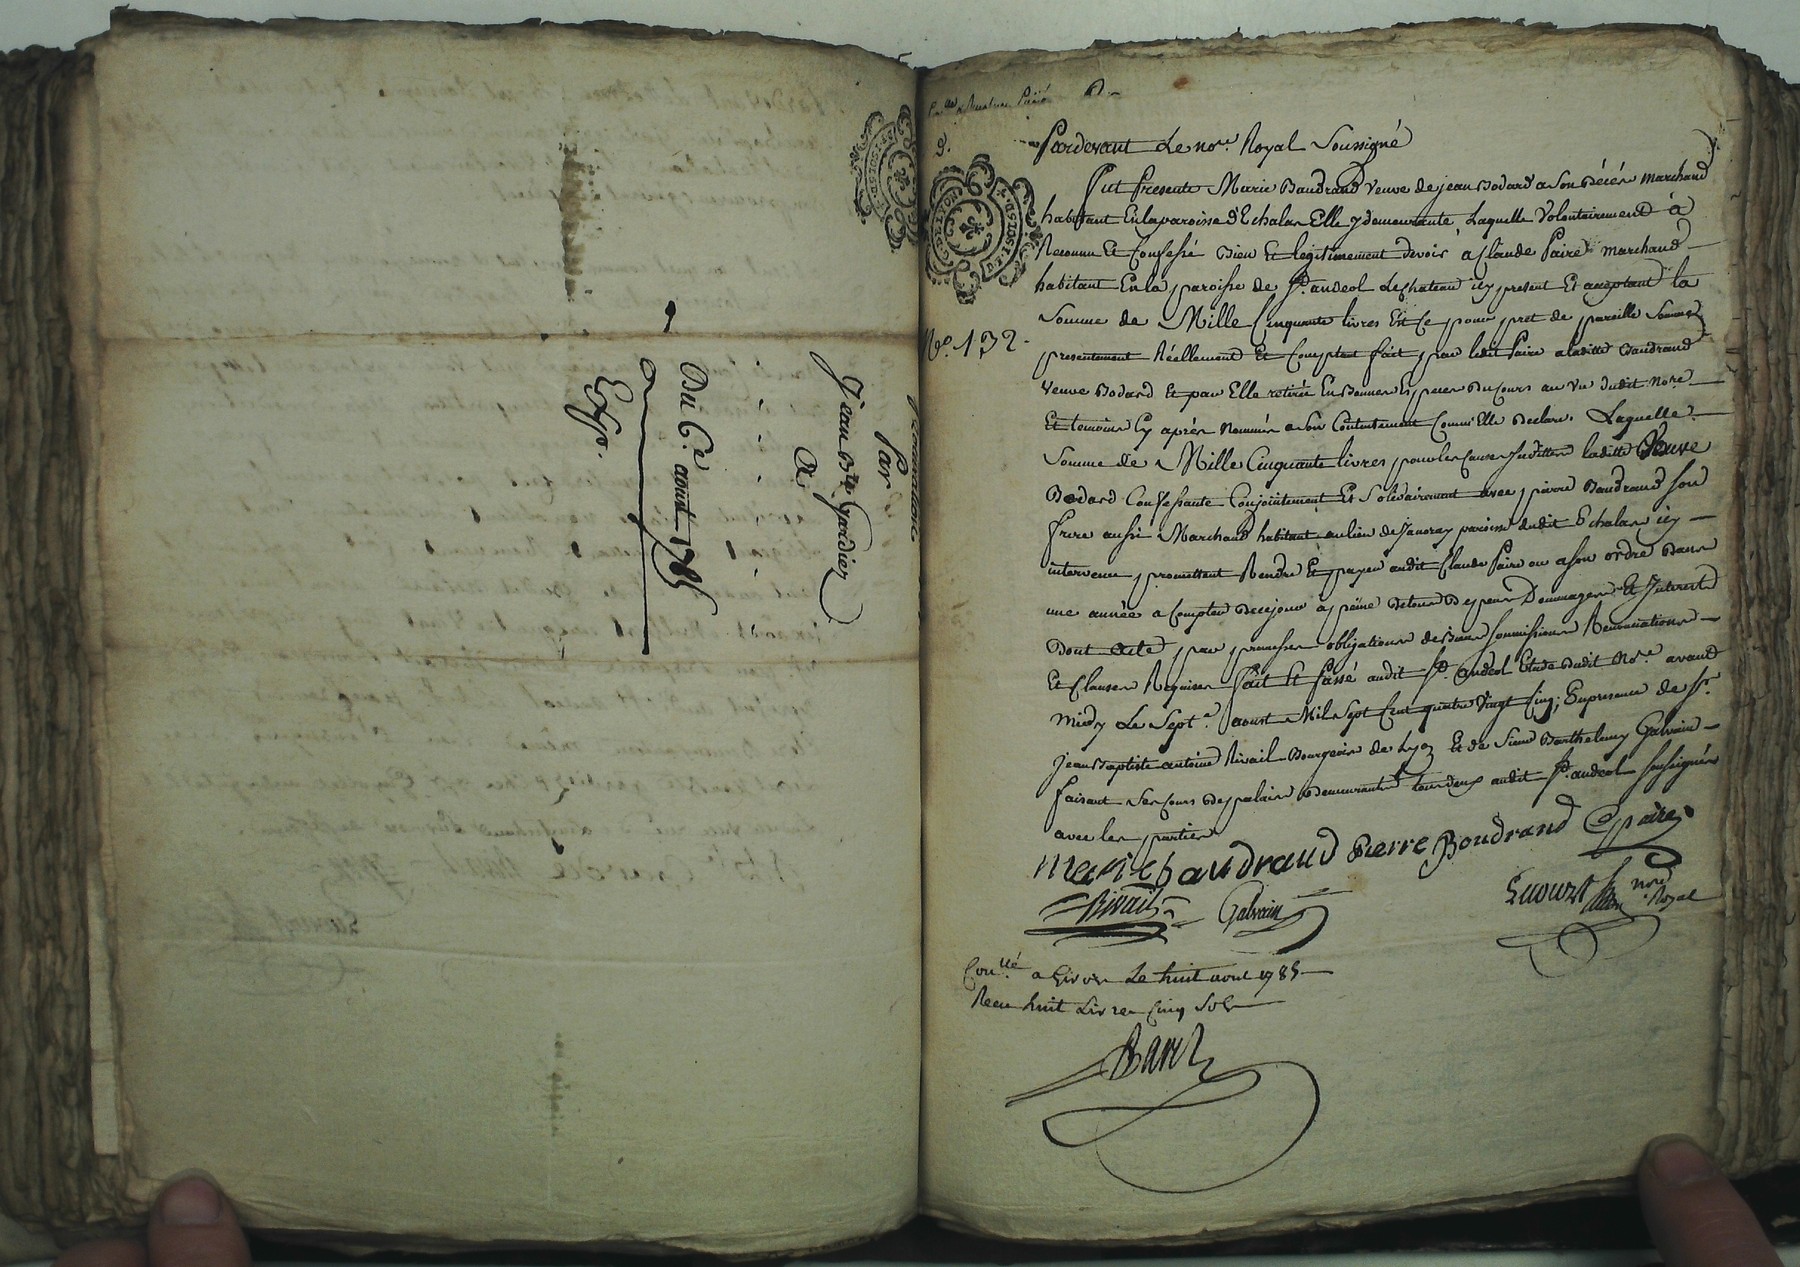 Quittance
Par
Jean Bte Gardier
A
Du 6e aoust 1785
Exp.
9.
No. 132
Pardevant Le nore. Royal Soussigné
Fut Presente Marie Baudrand Veuve de jean Bodard a Son Décés Marchand
habitant En la paroisse d'Echalas Elle y demeurante, Laquelle Volontairement à
Reconnu Et Confessé Bien Et legitimement devoir à Claude Paire marchand
habitant En la paroisse de St. andeol Le chateau icy present Et acceptant la
Somme de Mille Cinquante livres Et Ce pour pret de pareille Somme
presentement Réellement Et Comptant fait par ledit Paire a laditte Baudrand
Veuve Bodard Et par Elle retirée En Bonnes Especes Du Cours au Vu dudit Nore
Et temoins Cy aprés Nommés a Son Contentement Comm'Elle Declare. Laquelle
Somme de Mille Cinquante livres pour les Causes Sudittes laditte Veuve
Bodard Confessante Conjointement Et Solidairement avec pierre Baudrand Son
frere aussi Marchand habitant au lieu de Janoray paroisse dudit Echalas icy
intervenu promettent Rendre Et payer audit Claude Paire ou a Son ordre Dans
une année a Compter De ce jour à peine De tous Depens Dommages Et Interest
Dont acte par promesses obligations de Biens Soumissions Renonciations
Et Clauses Requises Fait Et Passé audit St. andeol Etude Dudit Nore. avant
midy Le Sept. aoust Mil Sept Cent quatre Vingt Cinq; En presence de Sr.
Jean Baptiste antoine Rivail Bourgeois de Lyon Et de Sieur Barthelemy Galvain
faisant Ses Cours De palais Demeurants tous deux audit St. andeol Soussignés
avec les parties
marie baudraud Pierre Boudrand C paire
Rivail Galvain nore Royal
Conllé a Givors Le huit aout 1785
Recu huit Livres Cinq Sols